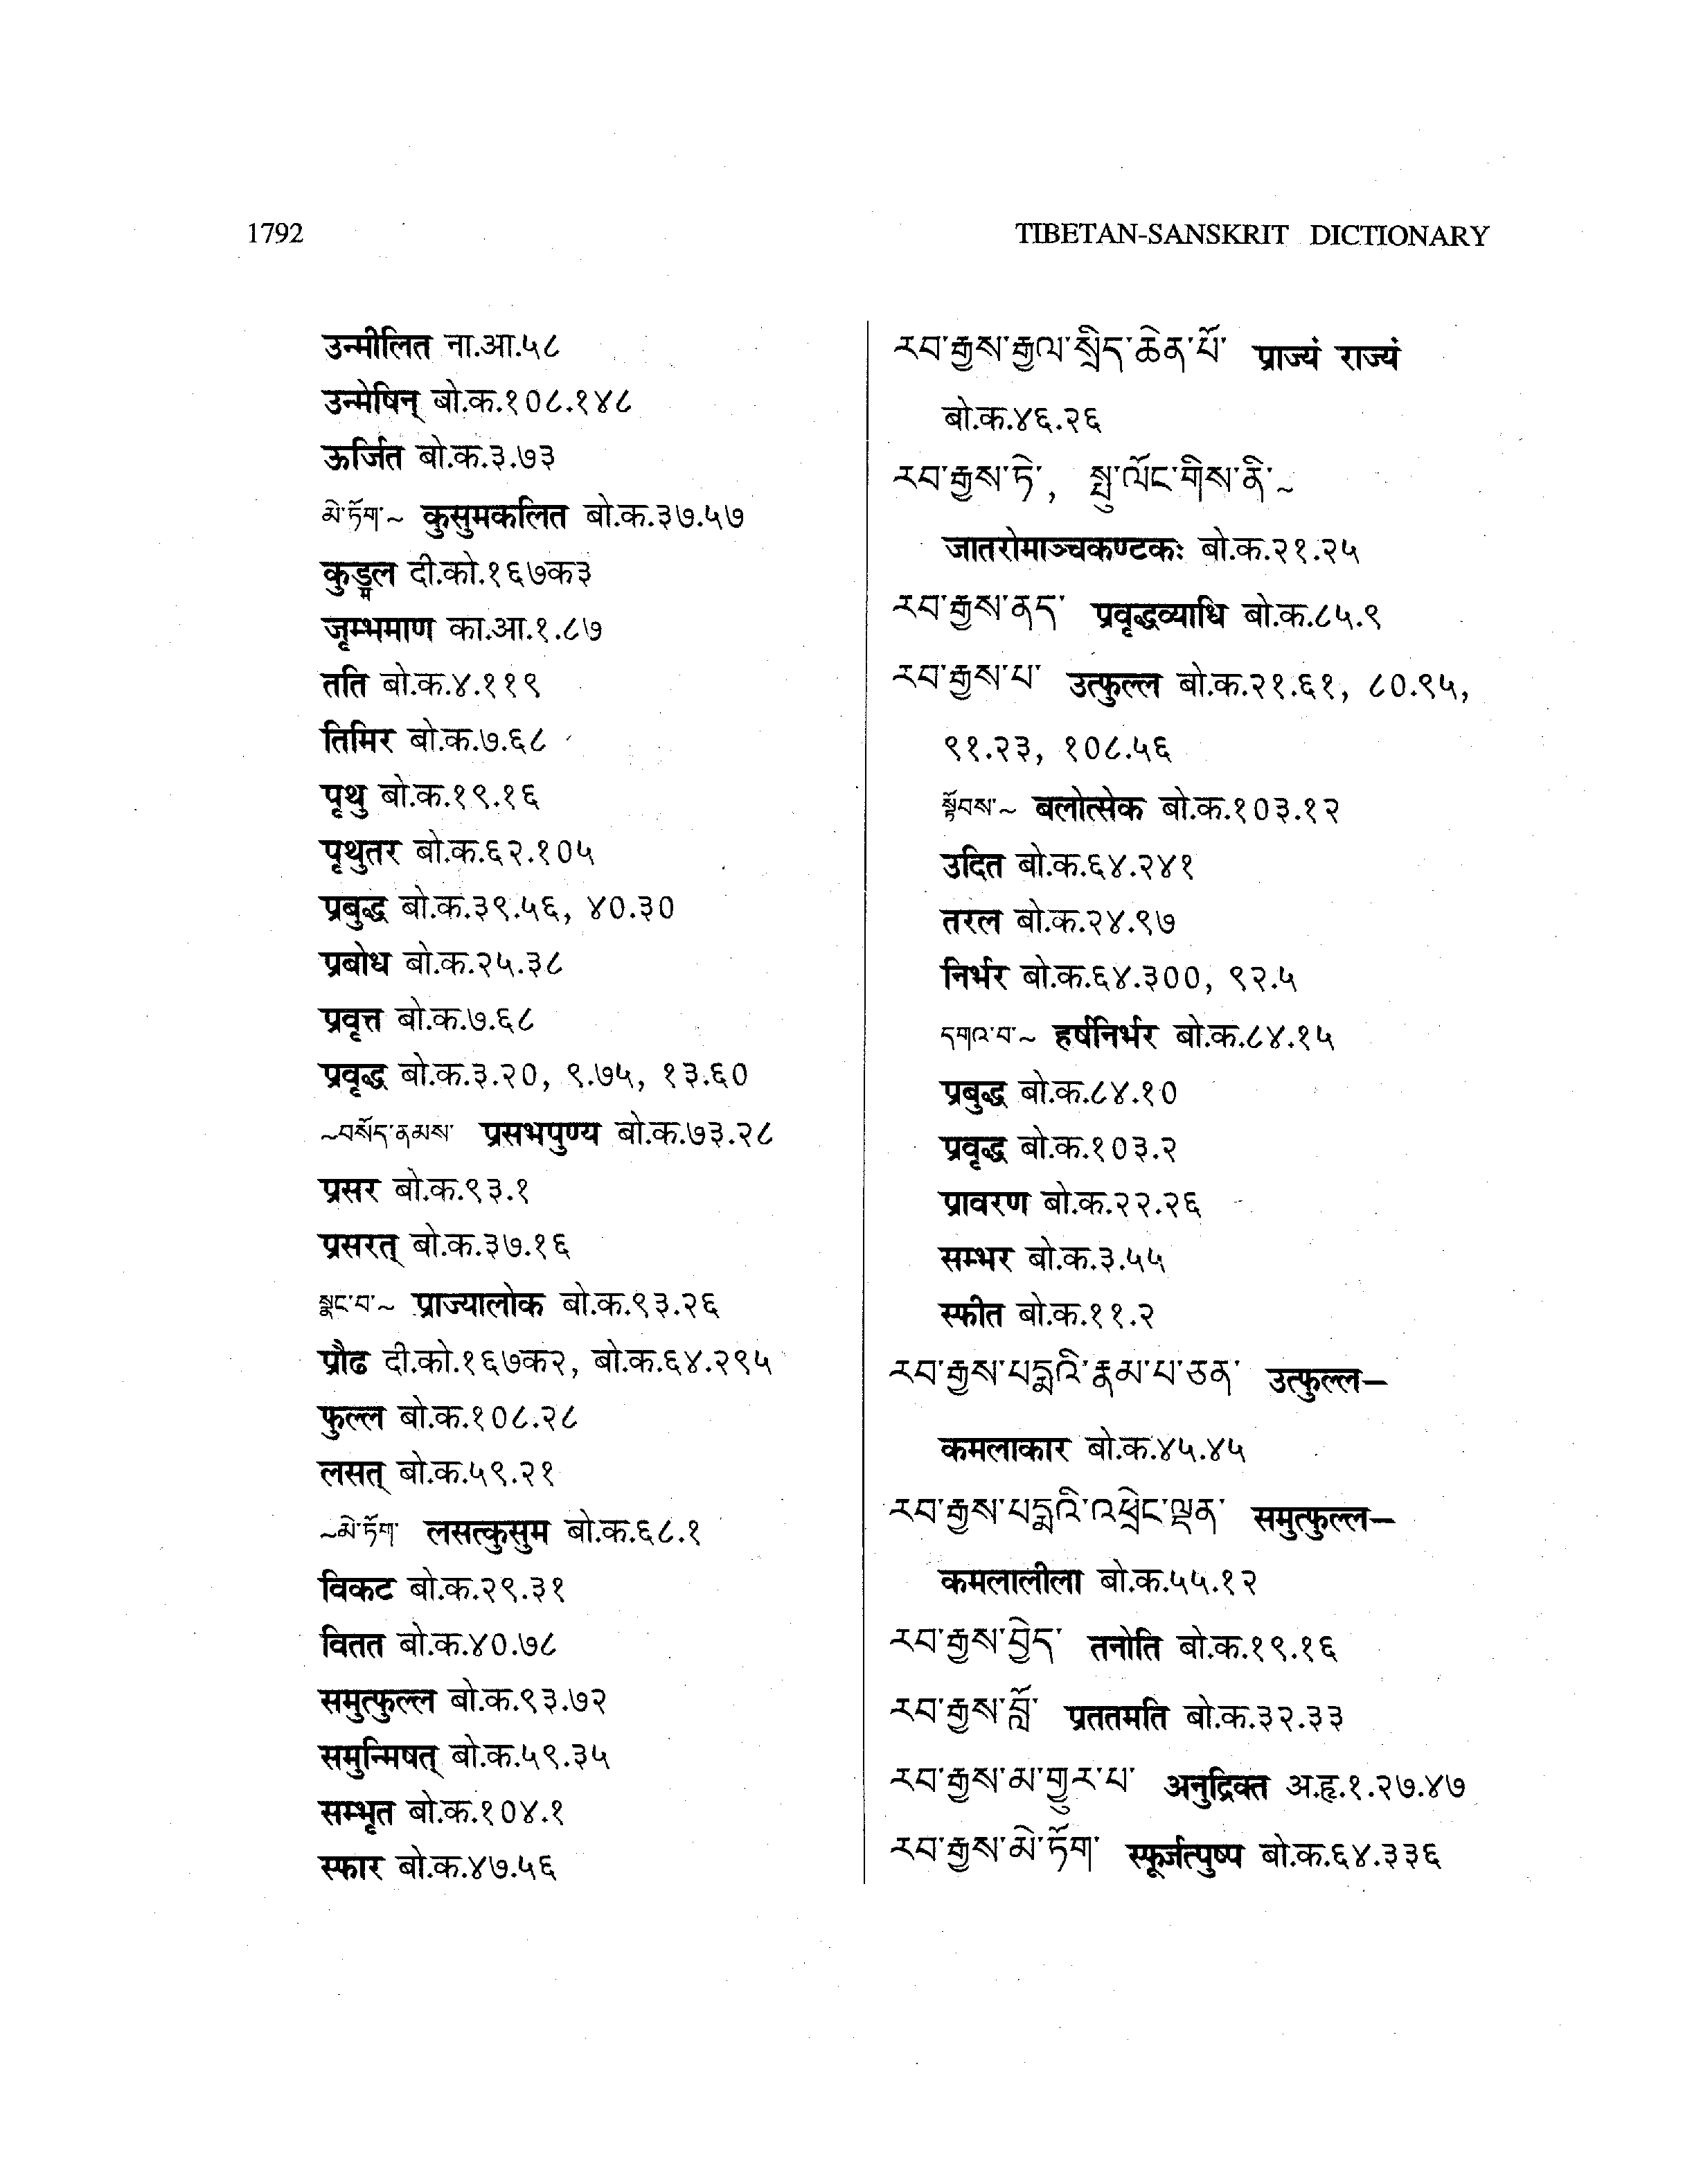 1792
TIBETAN-SANSKRIT DICTIONARY
उन्मीलित ना.आ.५८
उन्मेषिन् बो.क.१०८.१४८
ऊर्जित बो.क.३.७३
མེ་ཏོག་~ कुसुमकलित बो.क.३७.५७
कुड्मल दी.को.१६७क३
जृम्भमाण का.आ.१.८७
तति बो.क.४.११९
तिमिर बो.क.७.६८
पृथु बो.क.१९.१६
पृथुतर बो.क.६२.१०५
प्रबुद्ध बो.क.३९.५६, ४०.३०
प्रबोध बो.क.२५.३८
प्रवृत्त बो.क.७.६८
प्रवृद्ध बो.क.३.२०, ९.७५, १३.६०
~བསོད་ནམས་ प्रसभपुण्य बो.क.७३.२८
प्रसर बो.क.९३.१
प्रसरत् बो.क.३७.१६
སྣང་བ་~ प्राज्यालोक बो.क.९३.२६
प्रौढ दी.को.१६७क२, बो.क.६४.२९५
फुल्ल बो.क.१०८.२८
लसत् बो.क.५९.२१
~མེ་ཏོག་ लसत्कुसुम बो.क.६८.१
विकट बो.क.२९.३१
वितत बो.क.४०.७८
समुत्फुल्ल बो.क.९३.७२
समुन्मिषत् बो.क.५९.३५
सम्भृत बो.क.१०४.१
स्फार बो.क.४७.५६
རབ་རྒྱས་རྒྱལ་སྲིད་ཆེན་པོ་ प्राज्यं राज्यं
बो.क.४६.२६
རབ་རྒྱས་ཏེ་, སྤུ་ལོང་གིས་ནི་~
जातरोमाञ्चकण्टकः बो.क.२१.२५
རབ་རྒྱས་ནད་ प्रवृद्धव्याधि बो.क.८५.९
རབ་རྒྱས་པ་ उत्फुल्ल बो.क.२१.६१, ८०.९५,
९१.२३, १०८.५६
སྟོབས་~ बलोत्सेक बो.क.१०३.१२
उदित बो.क.६४.२४१
तरल बो.क.२४.९७
निर्भर बो.क.६४.३००, ९२.५
དགའ་བ་~ हर्षनिर्भर बो.क.८४.१५
प्रबुद्ध बो.क.८४.१०
प्रवृद्ध बो.क.१०३.२
प्रावरण बो.क.२२.२६
सम्भर बो.क.३.५५
स्फीत बो.क.११.२
རབ་རྒྱས་པདྨའི་རྣམ་པ་ཅན་ उत्फुल्ल–
कमलाकार बो.क.४५.४५
རབ་རྒྱས་པདྨའི་འཕྲེང་ལྡན་ समुत्फुल्ल–
कमलालीला बो.क.५५.१२
རབ་རྒྱས་བྱེད་ तनोति बो.क.१९.१६
རབ་རྒྱས་བློ་ प्रततमति बो.क.३२.३३
རབ་རྒྱས་མ་གྱུར་པ་ अनुद्रिक्त अ.हृ.१.२७.४७
རབ་རྒྱས་མེ་ཏོག་ स्फूर्जत्पुष्प बो.क.६४.३३६